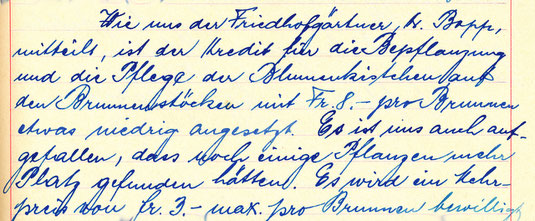 Wie uns der Friedhofgärtner, Hr. Bopp,
mitteilt, ist der Kredit für die Bepflanzung
und die Pflege der Blumenkistchen auf
den Brunnenstöcken mit Fr. 8.- pro Brunnen
etwas niedrig angesetzt. Es ist uns auch auf-
gefallen, dass noch einige Pflanzen mehr
Platz gefunden hätten. Es wird ein Mehr-
preis von Fr. 3.- max. pro Brunnen bewilligt